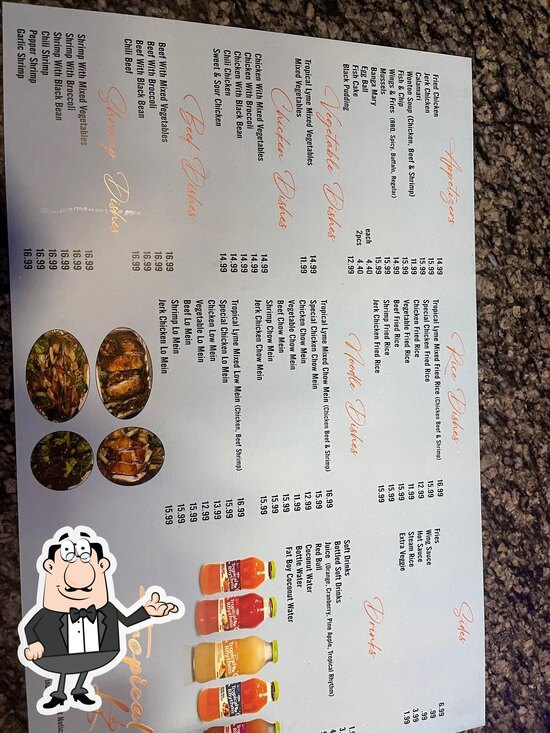 Appetizers
Fried Chicken 14.99
Jerk Chicken 15.99
Calamari 15.99
Wonton Soup (Chicken, Beef & Shrimp) 11.99
Fish & Chip 15.99
Wings & Fries (BBQ, Spicy, Buffalo, Regular) 14.99
Mussels 15.99
Banga Mary 15.99
Egg Ball each 4.40
Fish Cake 2pcs 4.40
Black Pudding 12.99
Vegetable Dishes
Tropical Lyme Mixed Vegetables 14.99
Mixed Vegetables 11.99
Chicken Dishes
Chicken With Mixed Vegetables 14.99
Chicken With Broccoli 14.99
Chicken With Black Bean 14.99
Chili Chicken 14.99
Sweet & Sour Chicken 14.99
Beef Dishes
Beef With Mixed Vegetables 16.99
Beef With Broccoli 16.99
Beef With Black Bean 16.99
Chili Beef 16.99
Shrimp Dishes
Shrimp With Mixed Vegetables 16.99
Shrimp With Broccoli 16.99
Shrimp With Black Bean 16.99
Chili Shrimp 16.99
Pepper Shrimp 16.99
Garlic Shrimp 16.99
Rice Dishes
Tropical Lyme Mixed Fried Rice (Chicken Beef & Shrimp) 16.99
Special Chicken Fried Rice 15.99
Chicken Fried Rice 12.99
Vegetable Fried Rice 11.99
Beef Fried Rice 15.99
Shrimp Fried Rice 15.99
Jerk Chicken Fried Rice 15.99
Noodle Dishes
Tropical Lyme Mixed Chow Mein (Chicken Beef & Shrimp) 16.99
Special Chicken Chow Mein 15.99
Chicken Chow Mein 12.99
Vegetable Chow Mein 11.99
Beef Chow Mein 15.99
Shrimp Chow Mein 15.99
Jerk Chicken Chow Mein 15.99
Tropical Lyme Mixed Low Mein (Chicken, Beef Shrimp) 16.99
Special Chicken Lo Mein 15.99
Chicken Low Mein 13.99
Vegetable Lo Mein 12.99
Beef Lo Mein 15.99
Shrimp Lo Mein 15.99
Jerk Chicken Lo Mein 15.99
Sides
Fries 6.99
Wing Sauce .99
Hot Sauce .99
Steam Rice 3.99
Extra Veggie 1.99
Drinks
Soft Drinks
Bottled Soft Drinks
Juice (Orange, Cranberry, Pine Apple, Tropical Rhythm)
Red Bull
Coconut Water
Bottle Water
Fat Boy Coconut Water
Tropical